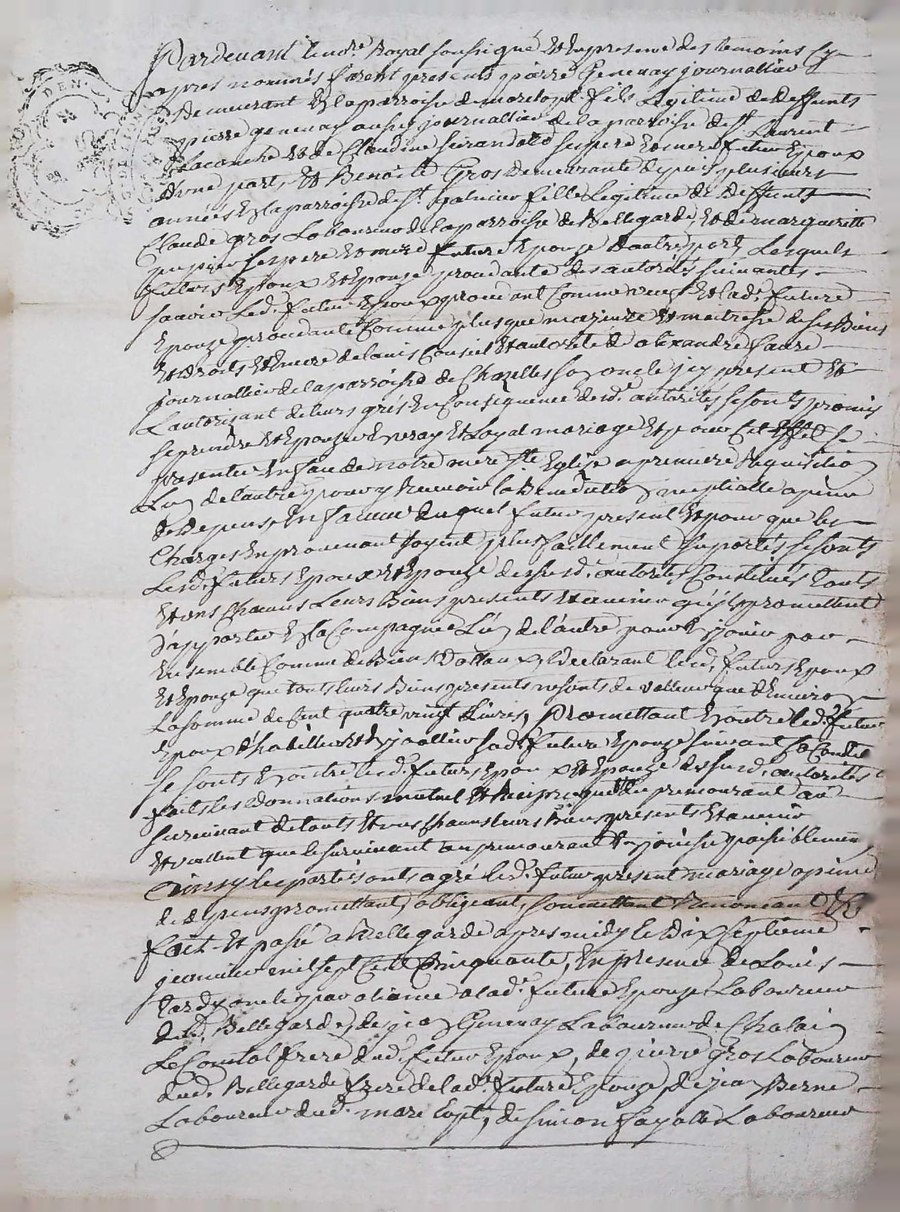 DEN
Pardevant le no.re Royal soussigné Et En presence des temoins cy
apres nommés furent presents pierre Genevay journallier
Demeurant En la parroisse de marclopt fils Legitime de deffunts
pierre genevay aussy journallier de la parroisse de St Laurent
Laconche Et de Claudine ses pere Et mere futur Epoux
D'une part, Et Benoite Gros demeurante depuis plusieurs
années En la parroisse de St galmier fille Legitime de Deffunts
Claude gros Laboureur de la parroisse de Bellegarde, Et de margueritte
pupier ses pere Et mere future Epouze d'autre part, Lesquels
futurs Epoux Et Epouze procedants des autorités suivantes
savoir Led. futur Epoux procedant Comme veuf Et lad. future
Epouze procedante Comme plus que majeure Et maitresse de ses Biens
Et droits Et Encore de l'avis Conseil Et autorité de alexandre faure
journallier de la parroisse de Chazelles son oncle icy present Et
L'autorisant de leurs grés En Consequence desd. autorités se sonts promis
se prendre Et Epouzer En vray Et Loyal mariage Et pour Cet Effet se
presenter En face de notre mere Ste Eglise a premiere Requisition
L'un de l'autre pour y Recevoir la Benediction nuptialle a peine
de depens, En faveur duquel futur present Et pour que les
Charges En provenant soyent plus facillement suportés se sonts
Lesd. futurs Epoux Et Epouze desusd. autorités Constitués touts
Et uns Chacuns Leurs Biens presents Et avenir qu'ils promettent
d'apporter En la Compagnie L'un de l'autre pour En jouir par
Ensemble Comme de Biens Dottaux, Declarant lesd. futurs Epoux
Et Epouze que touts leurs Biens presents ne sonts de valleur que d'Environ
La somme de Cent quatre vingt Livres, Promettant En outre led. futur
Epoux d'habiller Et Enjoailler sad. future Epouze suivant sa Condition
se sonts En outre lesd. futurs Epoux Et Epouze desusd. autorités
faits les donnations mutuel Et Reciproque du premourant au
survivant de touts Et uns Chacuns leurs Biens presents Et avenir
Et veullent que le survivant au premourant En jouisse paisiblement
Ainsy les parties onts agré led. futur present mariage a peine
de depens promettant, obligeant, soumettant Renonceant
fait Et passé a Bellegarde apres midy le Dix septieme
janvier mil sept Cent Cinquante, En presence de Louis
tardy oncle par aliance a lad. future Epouze Laboureur
dud. Bellegarde, de jean Genevay Laboureur de Chalain
Le Comtal frere dud. futur Epoux, de pierre gros Laboureur
dud. Bellegarde frere de lad. future Epouze de jean Berne
Laboureur dud. marclopt, de simon fayolle Laboureur